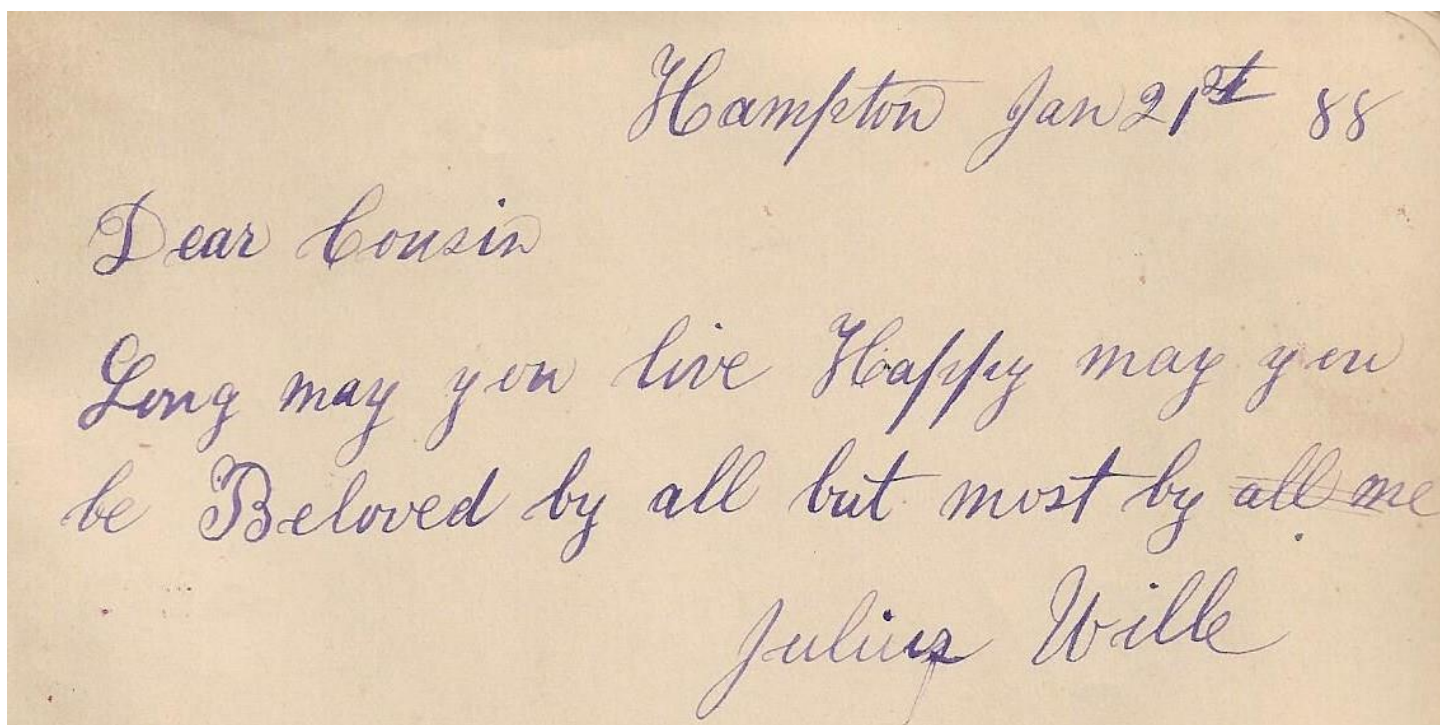 Hampton Jan 21st 88
Dear Cousin
Long may you live Happy may you
be Beloved by all but most by all me
Julius Wille